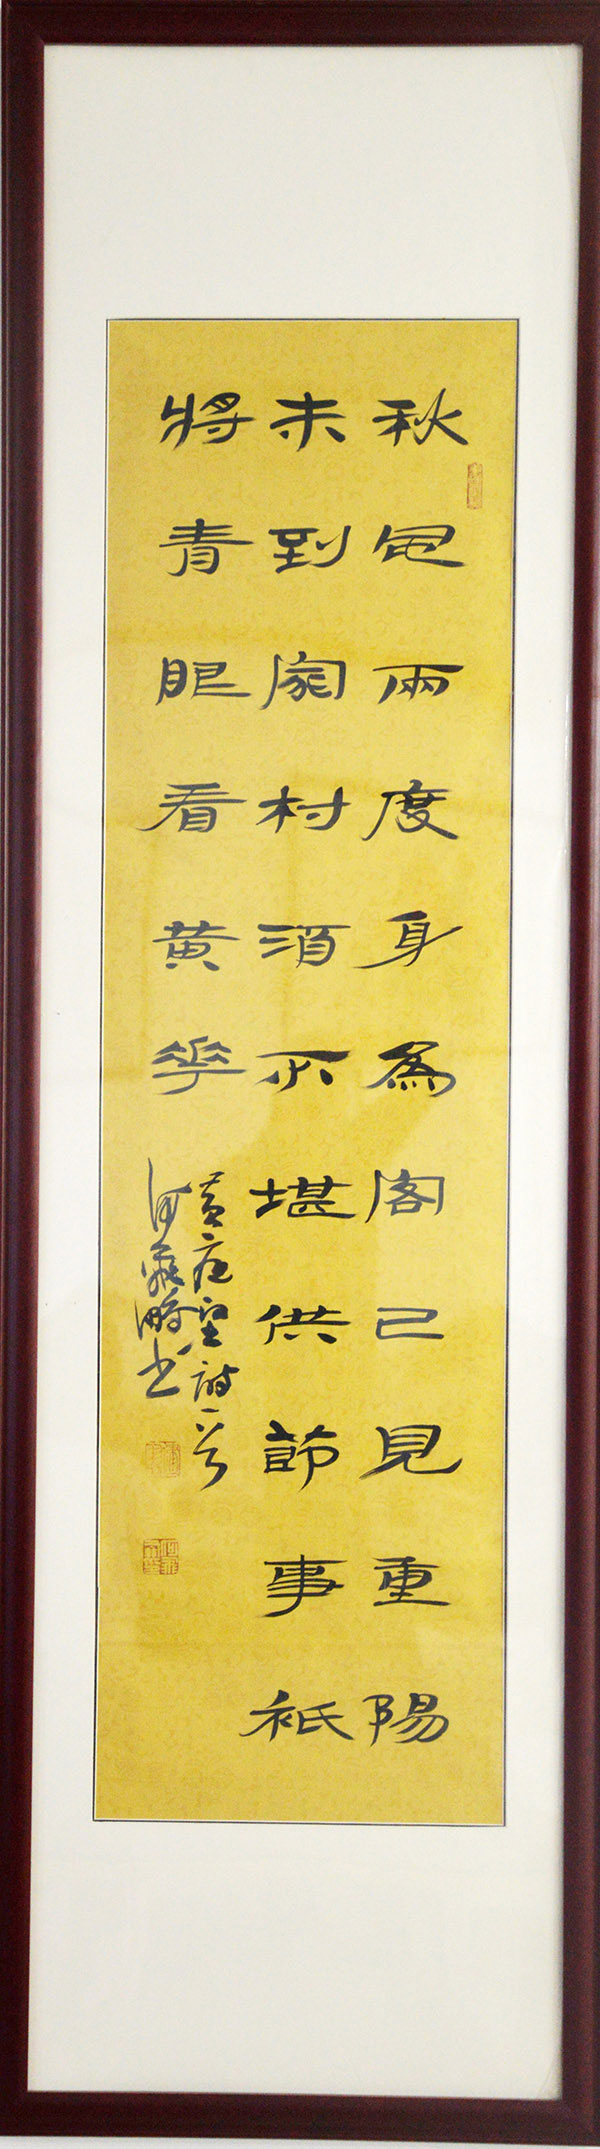 秋風兩度身為客已見重陽
未到家村酒不堪供節事祇
將青眼看黃華
黃庭堅詩一首
書